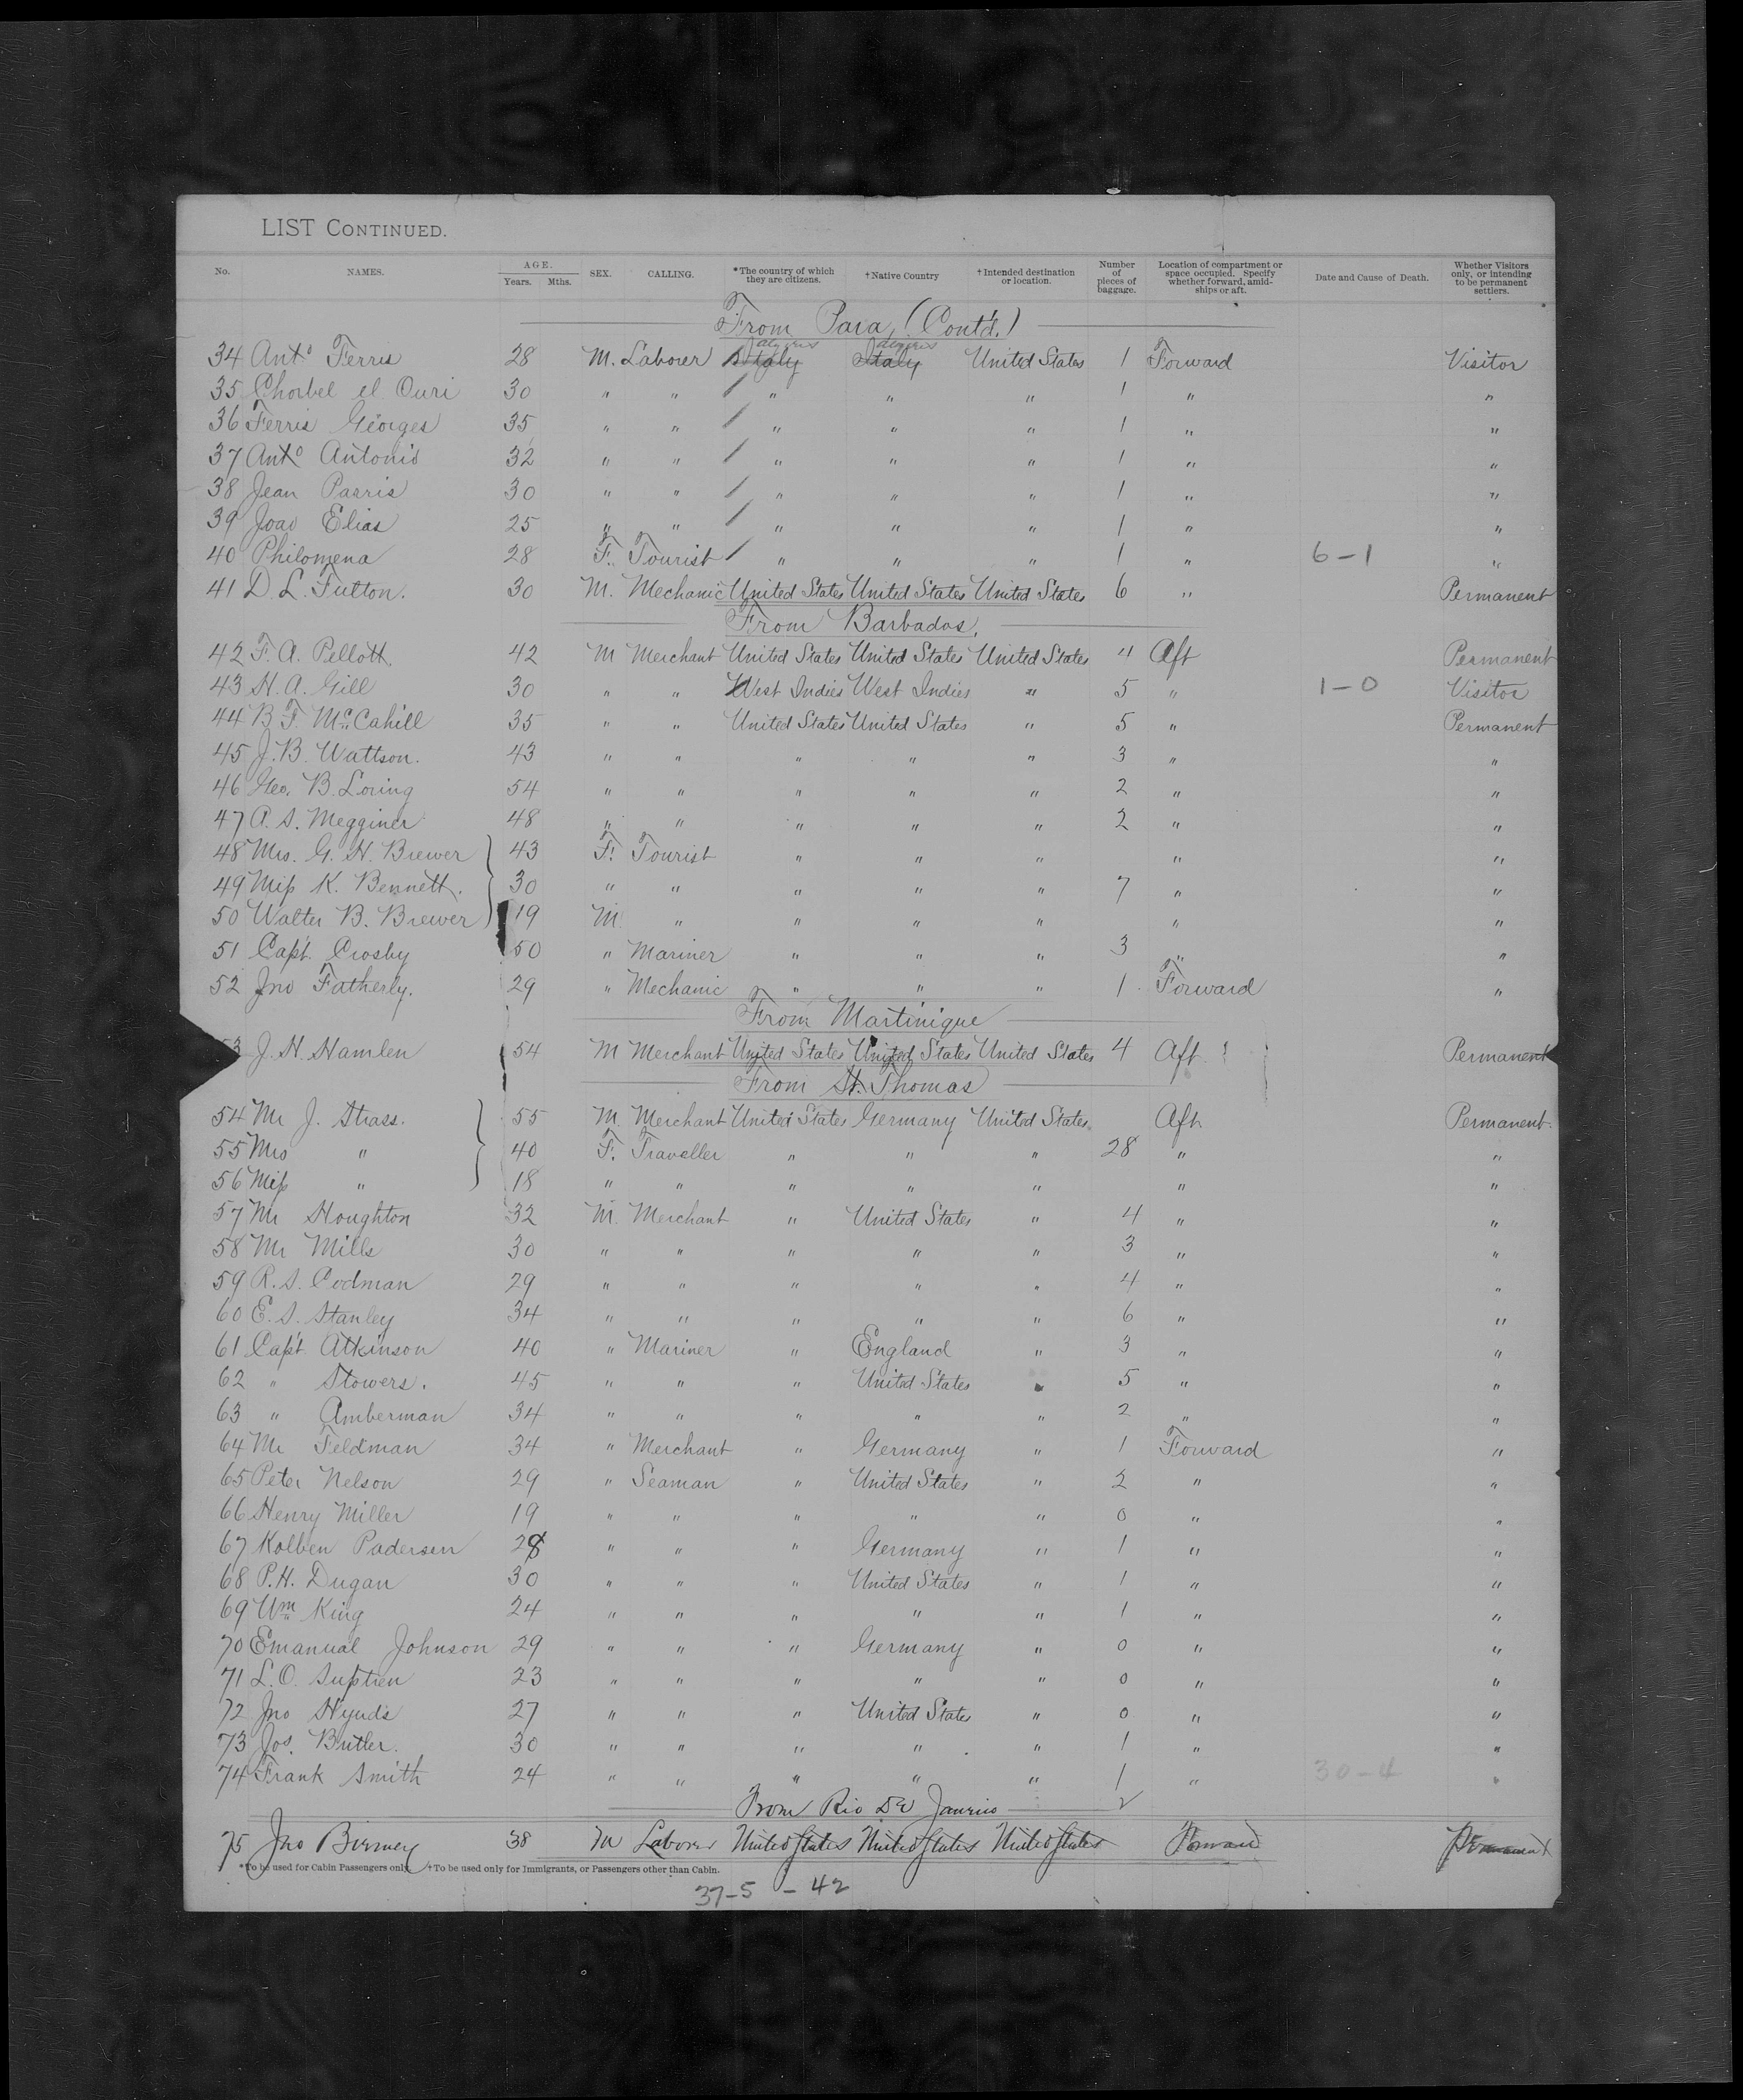 LIST CONTINUED.
No. NAMES. AGE. Years. Mths. SEX. CALLING. *The country of which they are citizens. †Native Country †Intended destination or location. Number of pieces of baggage. Location of compartment or space occupied. Specify whether forward, amidships or aft. Date and Cause of Death. Whether Visitors only, or intending to be permanent settlers.
From Para, (Cont'd.)
34 Anto Ferris 28 M. Laborer Italy Italy United States 1 Forward Visitor
35 Chorbel el Ouri 30 " " " " " 1 " "
36 Ferris Georges 35 " " " " " 1 " "
37 Anto Antonio 32 " " " " " 1 " "
38 Jean Parris 30 " " " " " 1 " "
39 Joao Elias 25 " " " " " 1 " "
40 Philomena 28 F. Tourist " " " 1 " 6-1 "
41 D. L. Fulton. 30 M. Mechanic United States United States United States 6 " Permanent
From Barbados.
42 F. A. Pellott. 42 M Merchant United States United States United States 4 Aft Permanent
43 H. A. Gill 30 " " West Indies West Indies " 5 " 1-0 Visitor
44 B. F. McCahill 35 " " United States United States " 5 " Permanent
45 J. B. Wattson. 43 " " " " " 3 " "
46 Geo. B. Loring 54 " " " " " 2 " "
47 A. S. Megginer 48 " " " " " 2 " "
48 Mrs. G. H. Brewer 43 F. Tourist " " " " "
49 Miss K. Bennett. 30 " " " " " 7 " "
50 Walter B. Brewer 19 M. " " " " " "
51 Capt. Crosby 50 " Mariner " " " 3 " "
52 Jno Fatherly. 29 " Mechanic " " " 1 Forward "
From Martinique
53 J. H. Hamlen 54 M Merchant United States United States United States 4 Aft Permanent
From St. Thomas
54 Mr J. Strass. 55 M. Merchant United States Germany United States Aft Permanent.
55 Mrs " 40 F. Traveller " " " 28 " "
56 Miss " 18 " " " " " " "
57 Mr Houghton 32 M. Merchant " United States " 4 " "
58 Mr Mills 30 " " " " " 3 " "
59 R. S. Codman 29 " " " " " 4 " "
60 E. S. Stanley 34 " " " " " 6 " "
61 Capt. Atkinson 40 " Mariner " England " 3 " "
62 " Stowers. 45 " " " United States " 5 " "
63 " Amberman 34 " " " " " 2 " "
64 Mr Feldman 34 " Merchant " Germany " 1 Forward "
65 Peter Nelson 29 " Seaman " United States " 2 " "
66 Henry Miller 19 " " " " " 0 " "
67 Kolben Padersen 28 " " " Germany " 1 " "
68 P. H. Dugan 30 " " " United States " 1 " "
69 Wm King 24 " " " " " 1 " "
70 Emanual Johnson 29 " " " Germany " 0 " "
71 L. O. 23 " " " " " 0 " "
72 Jno Hynds 27 " " " United States " 0 " "
73 Jos. Butler. 30 " " " " " 1 " "
74 Frank Smith 24 " " " " " 1 " 30-4 "
From Rio De Janeiro 2
75 Jno Birmey 38 M Laborer United States United States United States Forward Permanent
*To be used for Cabin Passengers only. †To be used only for Immigrants, or Passengers other than Cabin.
37-5 - 42